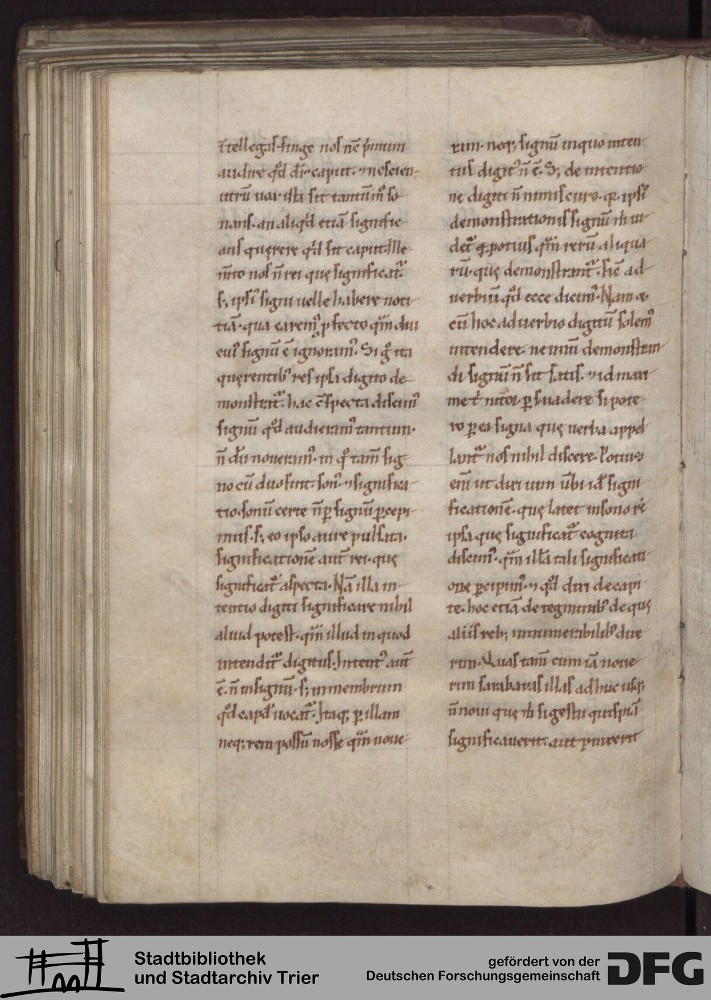 ītellegas finge nos nc̄ p̄mum
audire qd̄ dr̄ caput. ⁊ nescien
utrū uox ista sit tantūm̊ so
nans. an aliqd̄ etiā signific
ans querere qd̄ sit caput. Me
m̄to nos n̄ rei que significat᷑.
s; ipsi᷒ signi uelle habere noti
tiā. qua carem᷒ ꝓfecto qm̄ diu
cui᷒ signū ē ignoram᷒. Si g͛ ita
querentib᷒ res ipsa digito de
monstrat᷑. hac c̄specta discim᷒
signū qd̄ audieram᷒ tantum.
n̄ dū noueram᷒. in q͛ tam̄ sig
no cū duo sint. son᷒ ⁊ significa
tio. sonū certe n̄ ꝑ signū ꝑcepi
mus. s; eo ipso aure pulsata.
significationē aut̄ rei. que
significat᷑ aspecta. Nā illa in
tentio digiti significare nihil
aliud potest. qm̄ illud in quod
intendit᷑ digitus. Intent᷒ aut̄
ē. n̄ in signū. s; in membrum
qd̄ capd̄ uocat᷑. Itaq; ꝑ illam
neq; rem possū nosse qm̄ noue
ram. neq; signū in quo inten
tus digit᷒ n̄ ē. S; de intentio
ne digiti n̄ nimis curo. q̄ ipsi᷒
demonstrationis signū m̄ ui
det᷑ q̄ potius. qm̄ rerū aliqua
rū. que demonstrant᷑. sic̄ ad
uerbiū qd̄ ecce dicim᷒. Nam ⁊
cū hoc aduerbio digitū solem᷒
intendere. ne unū demonstran
di signū n̄ sit satis. ⁊ id maxi
me t᷒ nitor ꝑsuadere si pote
ro ꝑ ea signa que uerba appel
lant᷑ nos nihil discere. Potius
eni ut dixi uim ūbi id ē signi
ficationē. que latet in sono re
ipsa que significat᷑ cognita
discim᷒. qm̄ illā tali significati
one ꝑcipim᷒. ⁊ qd̄ dixi de capi
te. hoc etiā de tegminib᷒ de que
aliis reb; innumerabilib᷒ dixe
rim. Quas tam̄ cum iā noue
rim sarabaras illas adhuc usq;
n̄ noui. que m̄ si gestu quispiā
significauerit. aut pinxerit
Stadtbibliothek
und Stadtarchiv Trier
gefördert von der
Deutschen Forschungsgemeinschaft
DFG